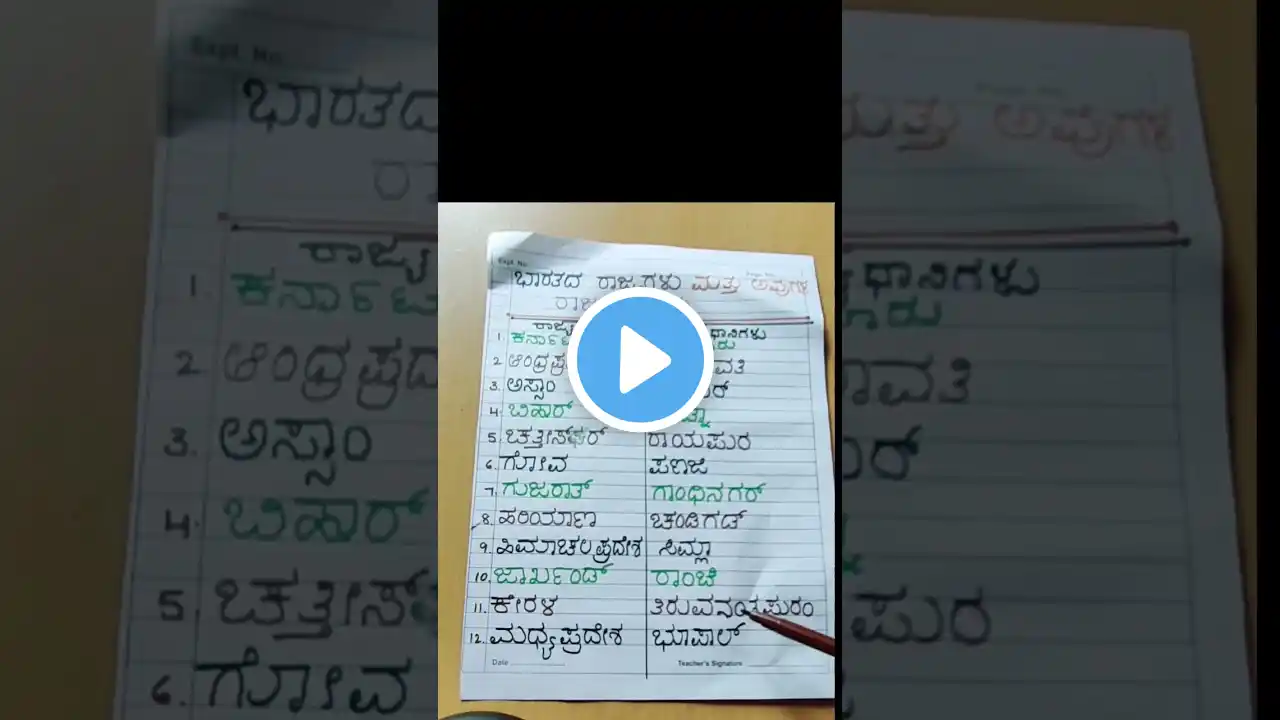 Expt. No.
ಭಾರತದ ರಾಜ್ಯಗಳು ಮತ್ತು ಅವುಗಳ
ರಾಜ
ರಾಜ್ಯ ಧಾನಿಗಳು
1. ಕರ್ನಾಟ ರು
2. ಆಂಧ್ರಪ್ರ ಾವತಿ
3. ಅಸ್ಸಾಂ ುರ್
4. ಬಿಹಾರ್ ತ್ನಾ
5. ಚತ್ತೀಸ್‌ಘರ್ ರಾಯಪುರ
6. ಗೋವ ಪಣಜಿ
7. ಗುಜರಾತ್ ಗಾಂಧಿನಗರ್
8. ಹರಿಯಾಣ ಚಂಡಿಗಡ್
9. ಹಿಮಾಚಲಪ್ರದೇಶ ಸಿಮ್ಲಾ
10. ಜಾರ್ಖಂಡ್ ರಾಂಚಿ
11. ಕೇರಳ ತಿರುವನಂತಪುರಂ
12. ಮಧ್ಯಪ್ರದೇಶ ಭೂಪಾಲ್
Date Teacher's Signature